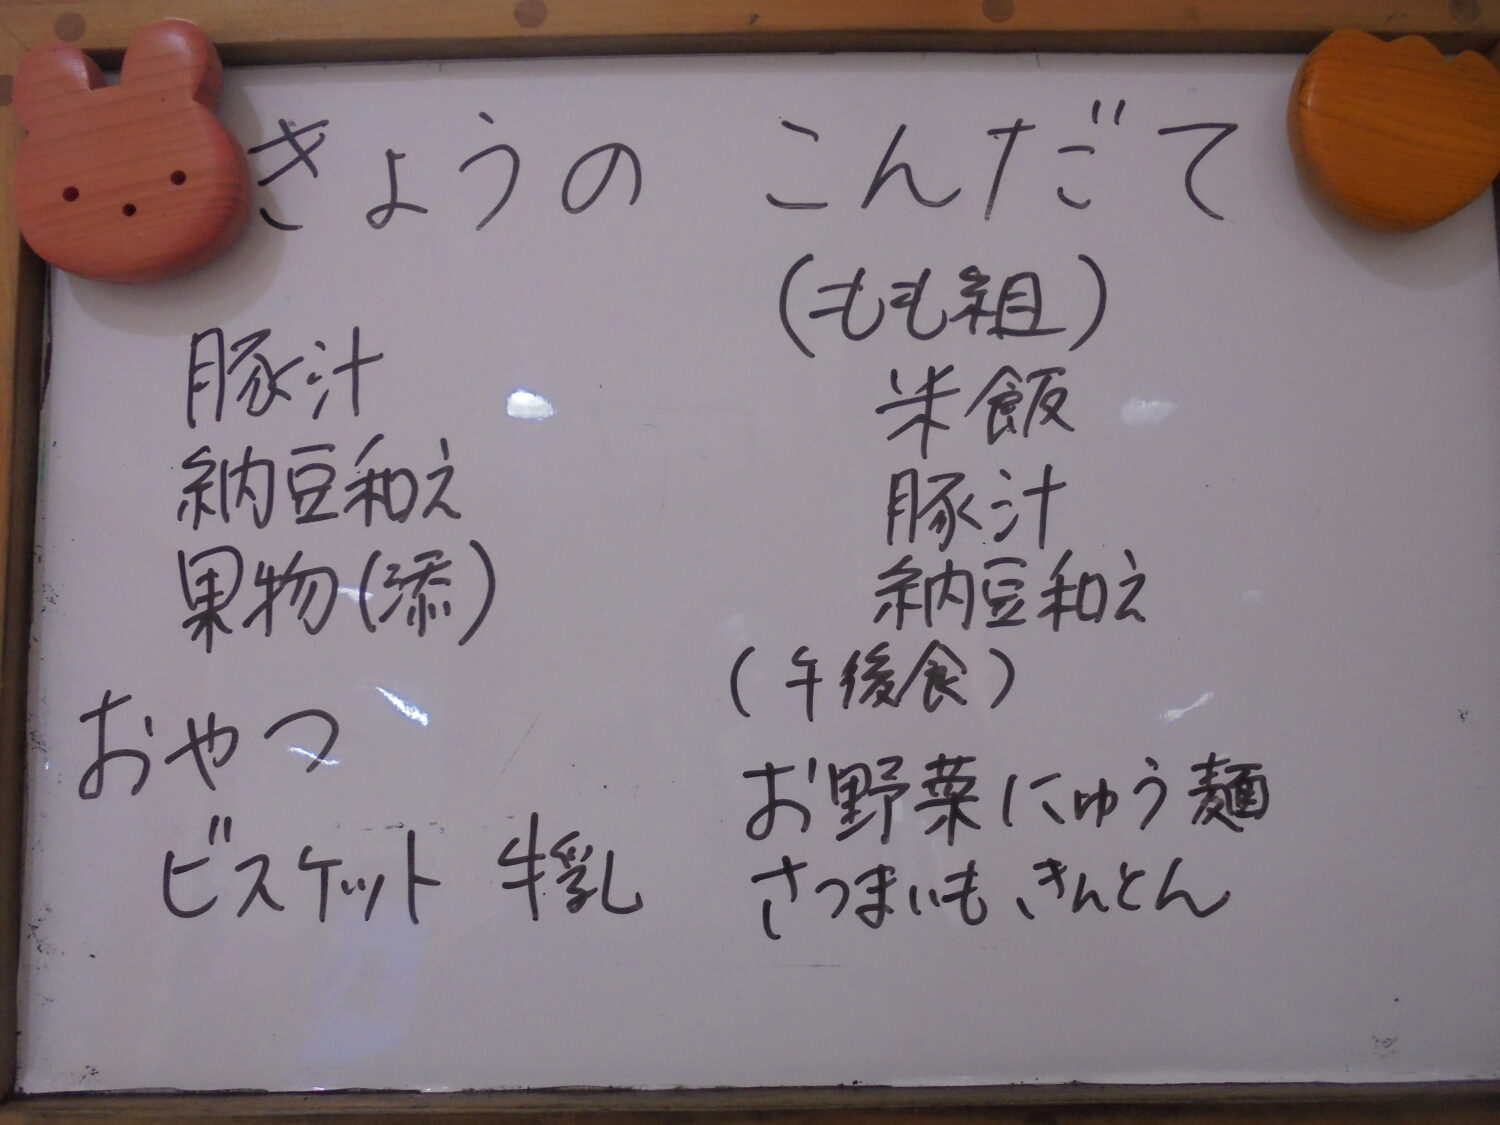 きょうの こんだて
豚汁
納豆和え
果物(添)
おやつ
ビスケット 牛乳
(もも組)
米飯
豚汁
納豆和え
(午後食)
お野菜にゅう麺
さつまいもきんとん